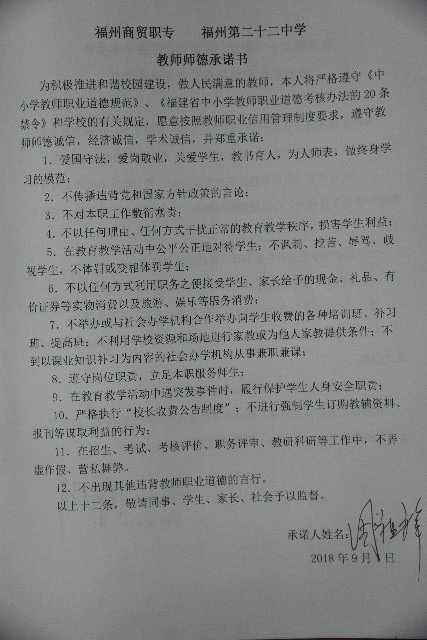 福州商贸职专 福州第二十二中学
教师师德承诺书
为积极推进和谐校园建设，做人民满意的教师，本人将严格遵守《中
小学教师职业道德规范》、《福建省中小学教师职业道德考核办法的 20 条
禁令》和学校的有关规定，愿意按照教师职业信用管理制度要求，遵守教
师师德诚信，经济诚信，学术诚信，并郑重承诺：
1．爱国守法，爱岗敬业，关爱学生，教书育人，为人师表，做终身学
习的模范；
2．不传播违背党和国家方针政策的言论；
3．不对本职工作敷衍塞责；
4．不以任何理由、任何方式干扰正常的教育教学秩序，损害学生利益；
5．在教育教学活动中公平公正地对待学生；不讽刺、挖苦、辱骂、歧
视学生，不体罚或变相体罚学生；
6．不以任何方式利用职务之便接受学生、家长给予的现金、礼品、有
价证券等实物消费以及旅游、娱乐等服务消费；
7．不举办或与社会办学机构合作举办向学生收费的各种培训班、补习
班、提高班；不利用学校资源和场地进行家教或为他人家教提供条件；不
到以课业知识补习为内容的社会办学机构从事兼职兼课；
8．遵守岗位职责，立足本职服务师生；
9．在教育教学活动中遇突发事件时，履行保护学生人身安全职责；
10．严格执行“校长收费公告制度”；不进行强制学生订购教辅资料、
报刊等谋取利益的行为；
11．在招生、考试、考核评价、职务评审、教研科研等工作中，不弄
虚作假、营私舞弊。
12．不出现其他违背教师职业道德的言行。
以上十二条，敬请同事、学生、家长、社会予以监督。
承诺人姓名：
2018 年 9 月 日